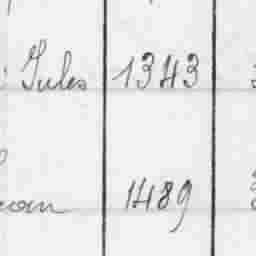 Jules 1343
1489